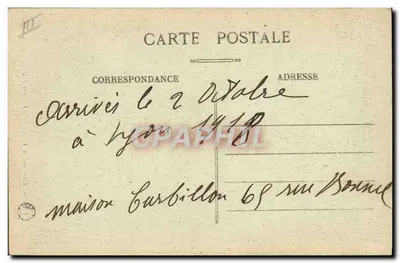 CARTE POSTALE
CORRESPONDANCE ADRESSE
Arrivés le 2 Octobre
à Lyon 1918
CPAPHIL
maison Curbillon 69 rue Bonnel